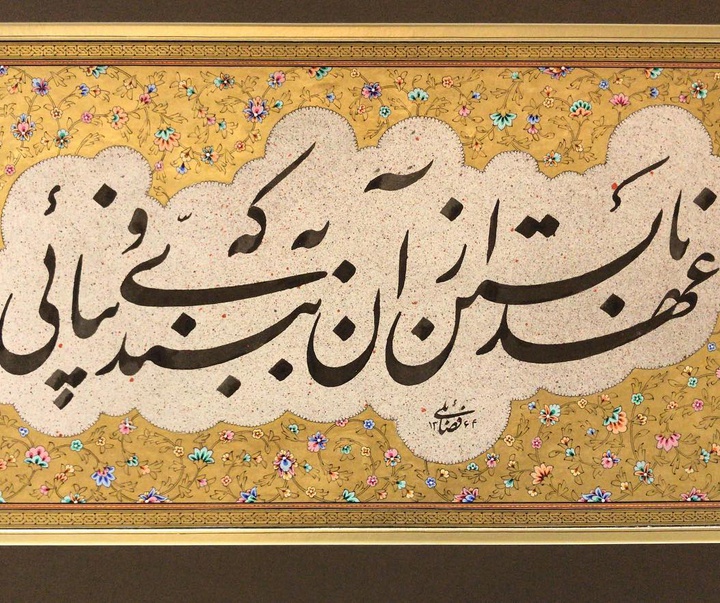 عهد نابستن از آن به که ببندی و نپائی
فضائلی ۱۳۶۴